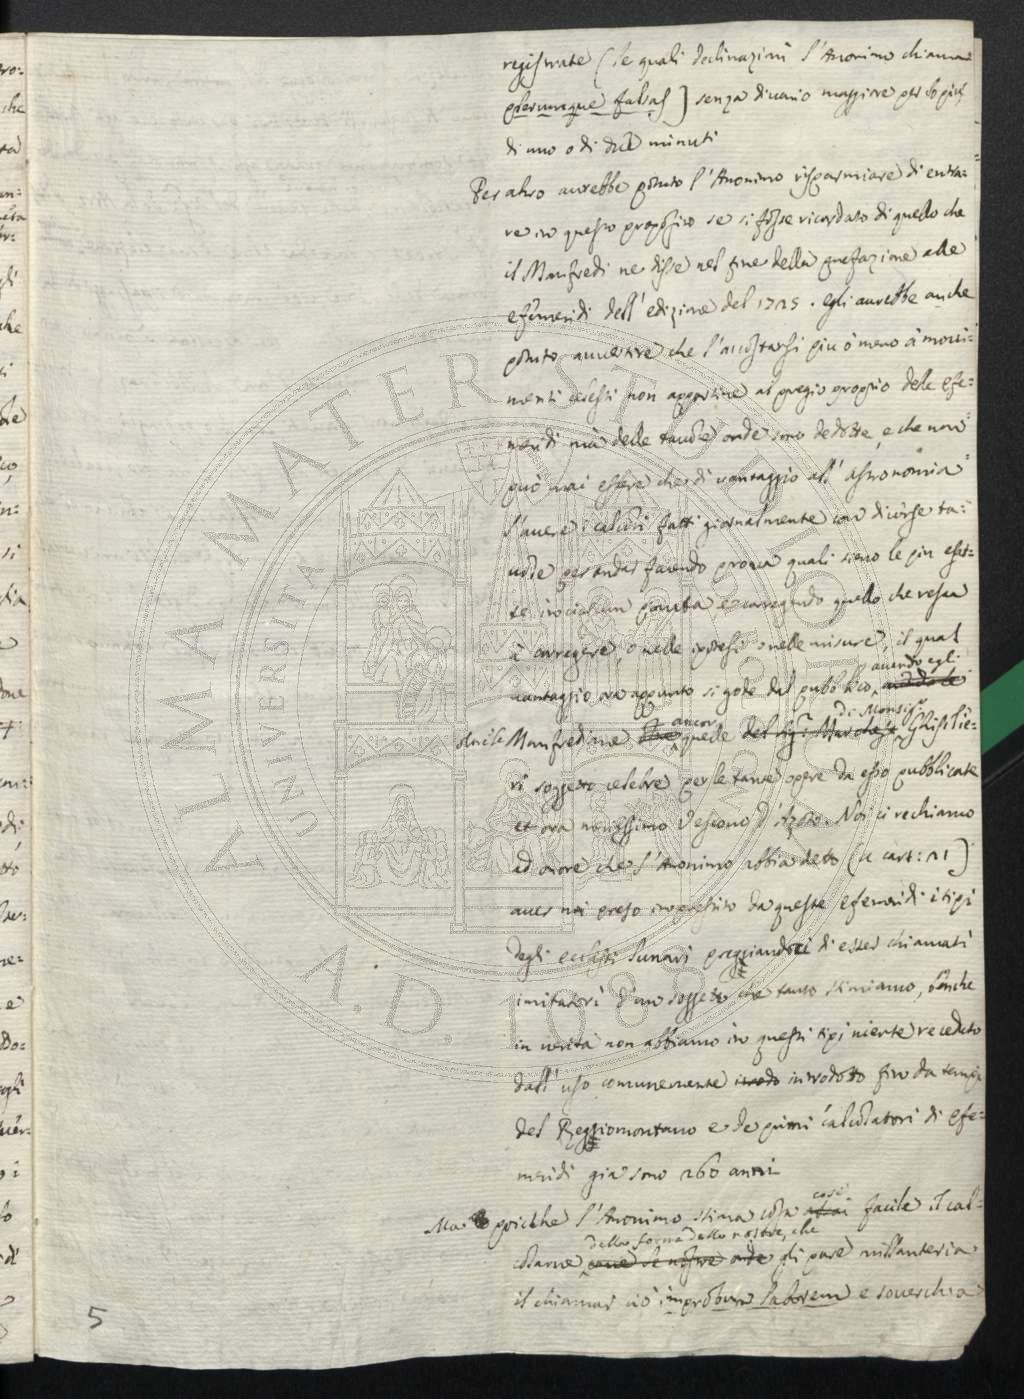 registrate (le quali declinazioni l'Anonimo chiama
plerumque falsas) senza divario maggiore per lo più
di uno o di due minuti
Per altro avrebbe potuto l'Anonimo risparmiare di entra=
re in questo proposito se si fosse ricordato di quello che
il Manfredi ne disse nel fine della prefazione alle
efemeridi dell'edizione del 1725. egli avrebbe anche
potuto avvertire che l'accostarsi piu ò meno à movi=
menti celesti non appartiene al pregio proprio delle efe=
meridi mà delle tavole onde sono dedotte, e che non
può mai essere che di vantaggio all'astronomia
l'avere i calcoli fatti giornalmente con diverse ta=
vole per andar facendo prova quali sieno le piu esat=
te in ciascun pianeta, e correggendo quello che resta
à correggere, o nelle ipotesi o nelle misure, il qual
vantaggio ora appunto si gode dal pubblico, avendo egli
oltre le Manfrediane ancor quelle del Sig.r Marchese di Monsig.r Ghislie=
ri soggetto celebre per le tante opere da esso pubblicate
et ora novissimo Vescovo d'Azoto. Noi ci rechiamo
ad onore che l'Anonimo abbia detto (a cart: 21)
aver noi preso in prestito da queste efemeridi i tipi
degli eclissi lunari pregiandoci di esser chiamati
imitatori d'un soggetto che tanto stimiamo, benche
in verità non abbiamo in questi tipi niente receduto
dall'uso comunemente introdotto fin da tempi
del Reggiomontano e de primi calcolatori di efe=
meridi già sono 260 anni
Ma poichhe l'Anonimo stima cosa così facile il cal=
colarne della forma delle nostre, che gli pare millanteria
il chiamar ciò improbum laborem e soverchia
5
ALMA MATER STUDIORUM
UNIVERSITÀ DI BOLOGNA
A.D. 1088